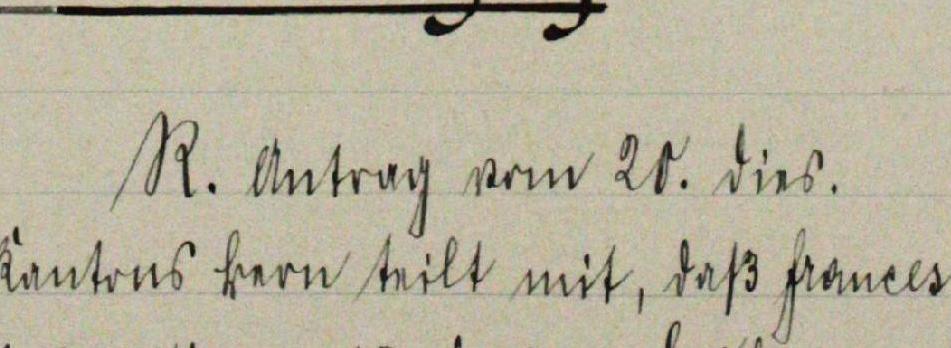 R. Antrag vom 20. dies.
Kantons Bern teilt mit, daß Frances